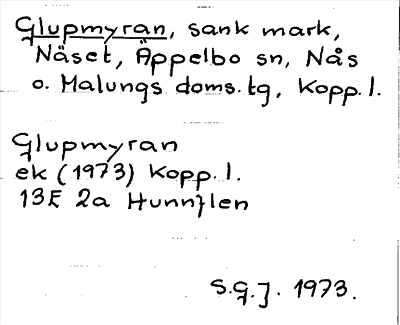 Glupmyran, sank mark,
Näset, Äppelbo sn, Nås
o. Malungs doms.tg, Kopp.l.
Glupmyran
ek (1973) Kopp.l.
13E 2a Hunnflen
S.G.J. 1973.